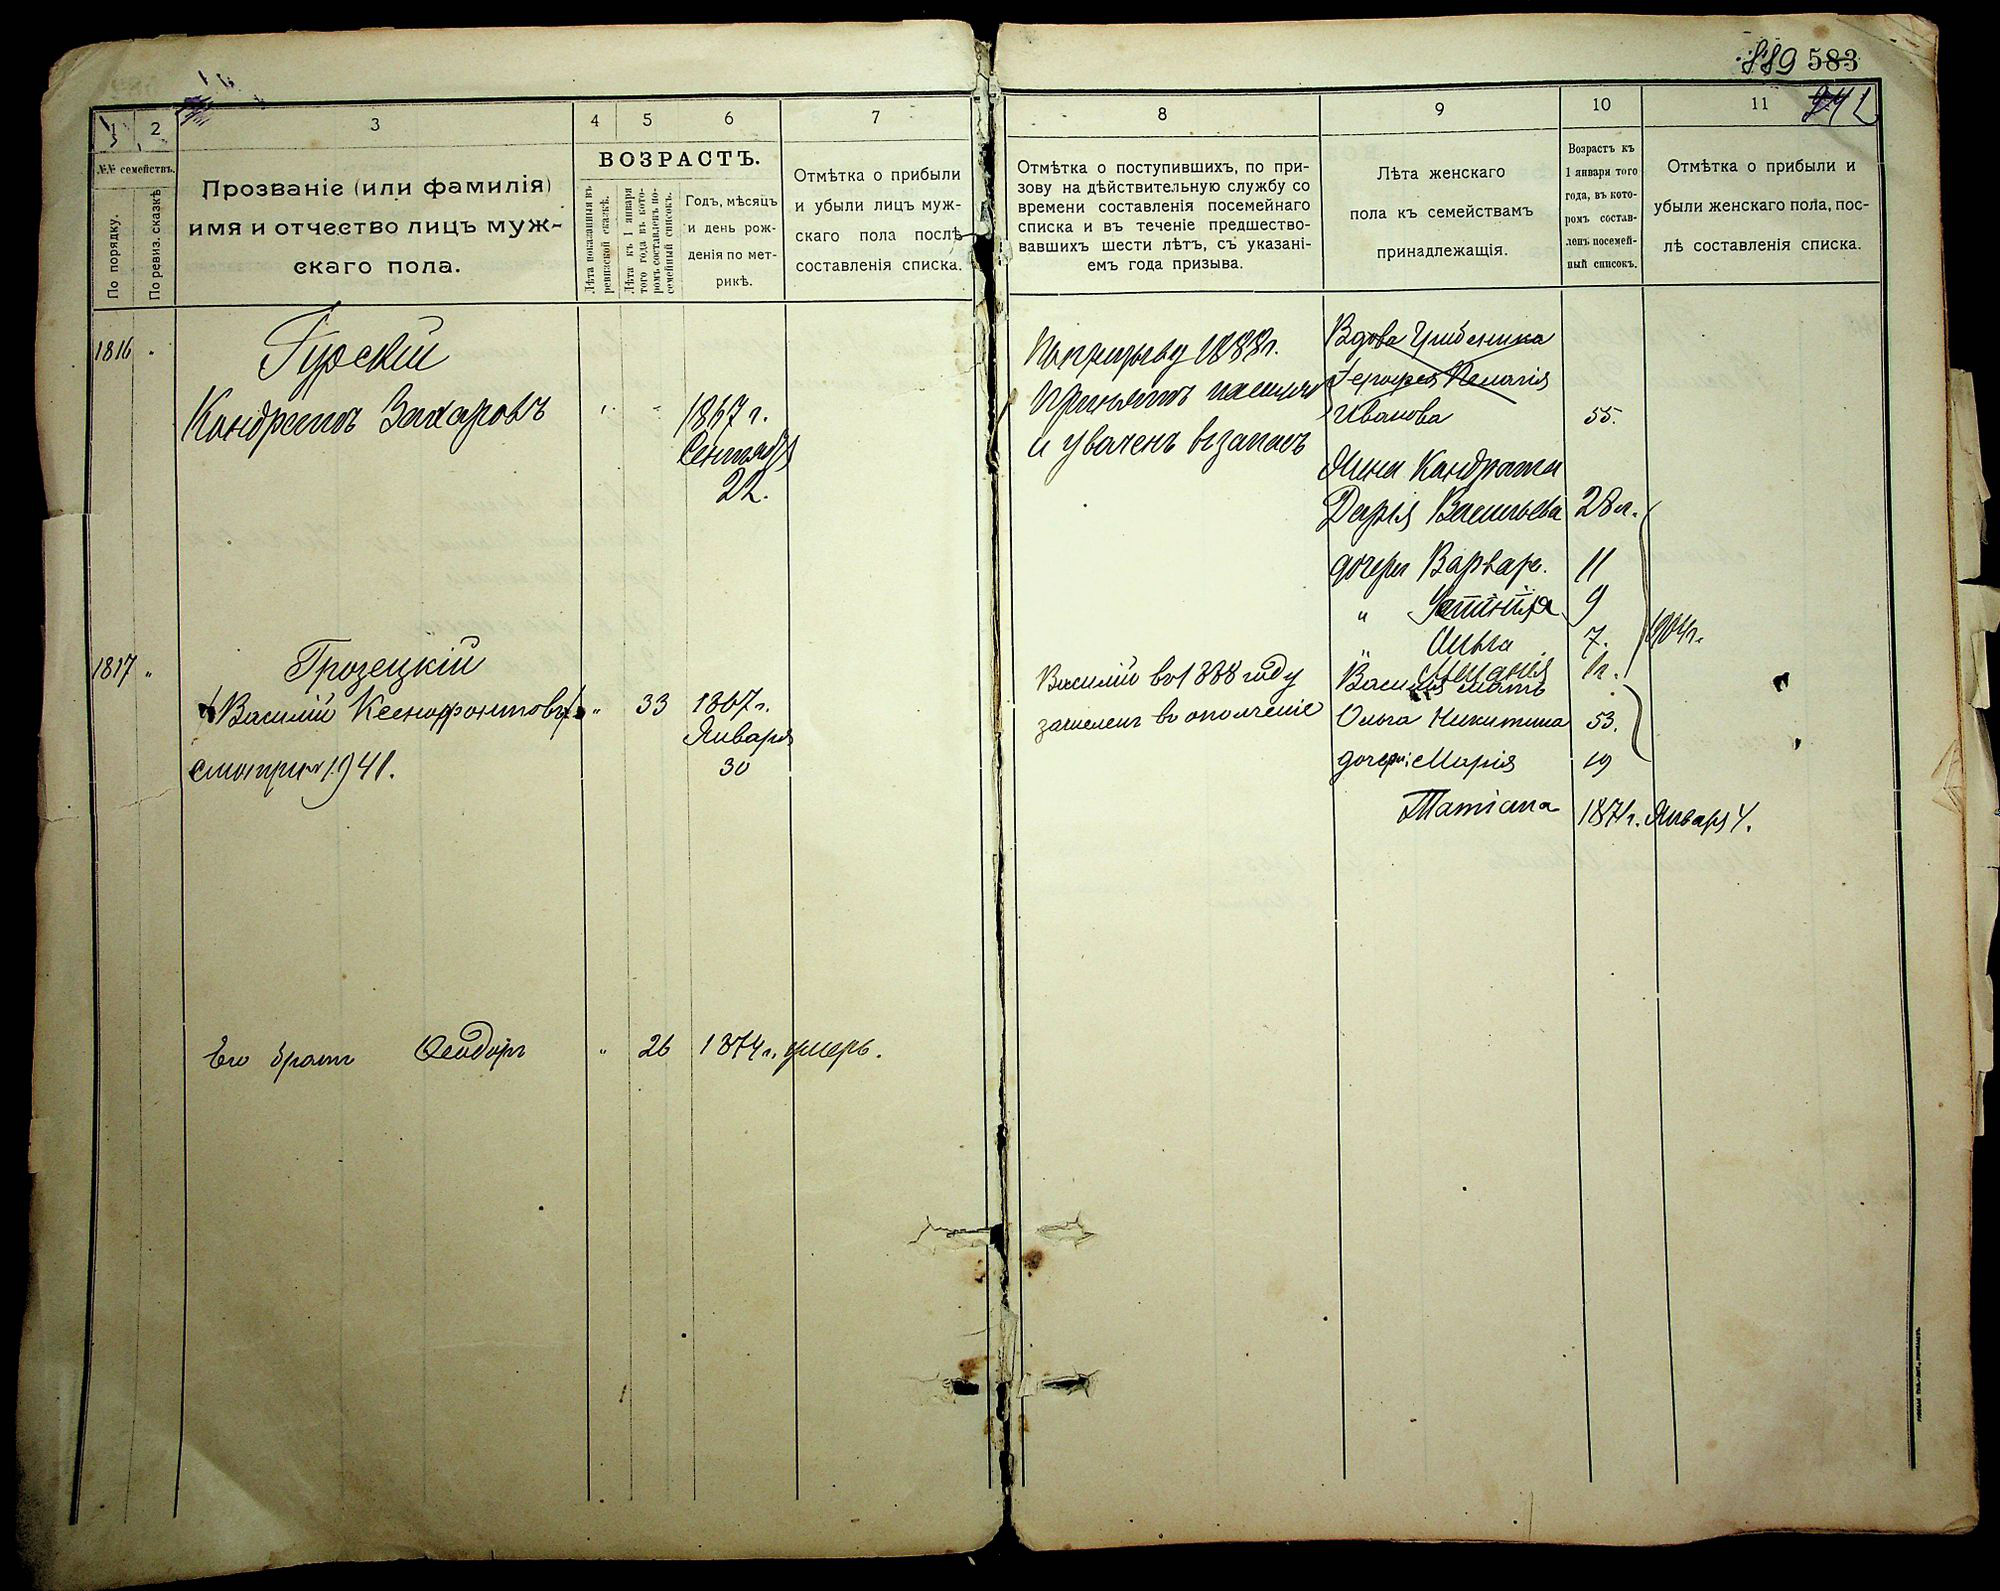 889 583
1
2
3
4
5
6
7
8
9
10
11
№№ семействъ.
По порядку.
По ревиз. сказкѣ
Прозваніе (или фамилія)
имя и отчество лицъ муж-
скаго пола.
ВОЗРАСТЪ.
Лѣта показанныя въ
ревизской сказкѣ.
Лѣта къ 1 января
того года въ кото-
ромъ составленъ по-
семейный списокъ.
Годъ, мѣсяцъ
и день рож-
денія по мет-
рикѣ.
Отмѣтка о прибыли
и убыли лицъ муж-
скаго пола послѣ
составленія списка.
Отмѣтка о поступившихъ, по при-
зову на дѣйствительную службу со
времени составленія посемейнаго
списка и въ теченіе предшество-
вавшихъ шести лѣтъ, съ указані-
емъ года призыва.
Лѣта женскаго
пола къ семействамъ
принадлежащія.
Возрастъ къ
1 января того
года, въ кото-
ромъ состав-
ленъ посемей-
ный списокъ.
Отмѣтка о прибыли и
убыли женскаго пола, пос-
лѣ составленія списка.
1816 "
Гурскій
Кондратъ Захаровъ
1867 г.
Сентября
22.
По призыву 1888 г.
Принятъ
и уволенъ в запасъ
Вдова
Пелагія
Иванова 55.
Жена Кондрата
Дарья Васильева 28 л.
дочери Варвара. 11
" Устинія 9
" Ольга 7.
1 г.
1904 г.
1817 "
Грозецкій
Василій Ксенофонтовъ " 33 1867 г.
Января
30
смотри № 1941.
Василій во 1888 году
зачислен во ополченіе
Василія мать
Ольга Никитина 53.
дочери: Марія 19
Татіана 1871 г. Января 4.
Его братъ Ѳеодоръ " 26 1874 г. умеръ.